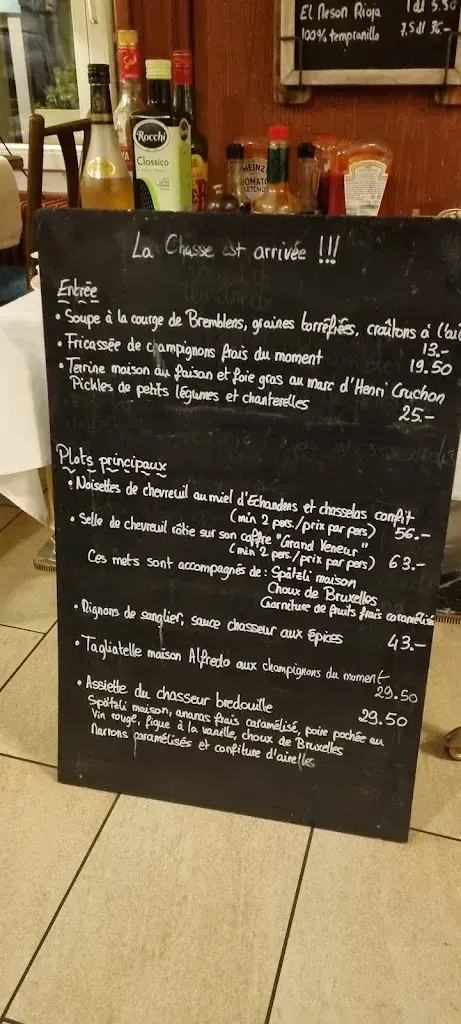 El Meson Rioja 1dl 5.50
100% tempranillo 7.5dl 36.-
Rocchi
Classico
HEINZ
TOMATO
KETCHUP
La Chasse est arrivée !!!
Entrée
• Soupe à la courge de Bremblens, graines torréfiées, croûtons à l'ail
13.-
• Fricassée de champignons frais du moment 19.50
• Terrine maison au faisan et foie gras au marc d'Henri Cruchon
Pickles de petits légumes et chanterelles 25.-
Plats principaux
• Noisettes de chevreuil au miel d'Echandens et chasselas confit
(min 2 pers/prix par pers) 56.-
• Selle de chevreuil rôtie sur son coffre "Grand Veneur"
(min 2 pers/prix par pers) 63.-
Ces mets sont accompagnés de : Spätzli maison
Choux de Bruxelles
Garniture de fruits frais caramélisés
• Rignons de sanglier, sauce chasseur aux épices 43.-
• Tagliatelle maison Alfredo aux champignons du moment
29.50
• Assiette du chasseur bredouille 29.50
Spätzli maison, ananas frais caramélisé, poire pochée au
Vin rouge, figue à la vanille, choux de Bruxelles
Marrons caramélisés et confiture d'airelles